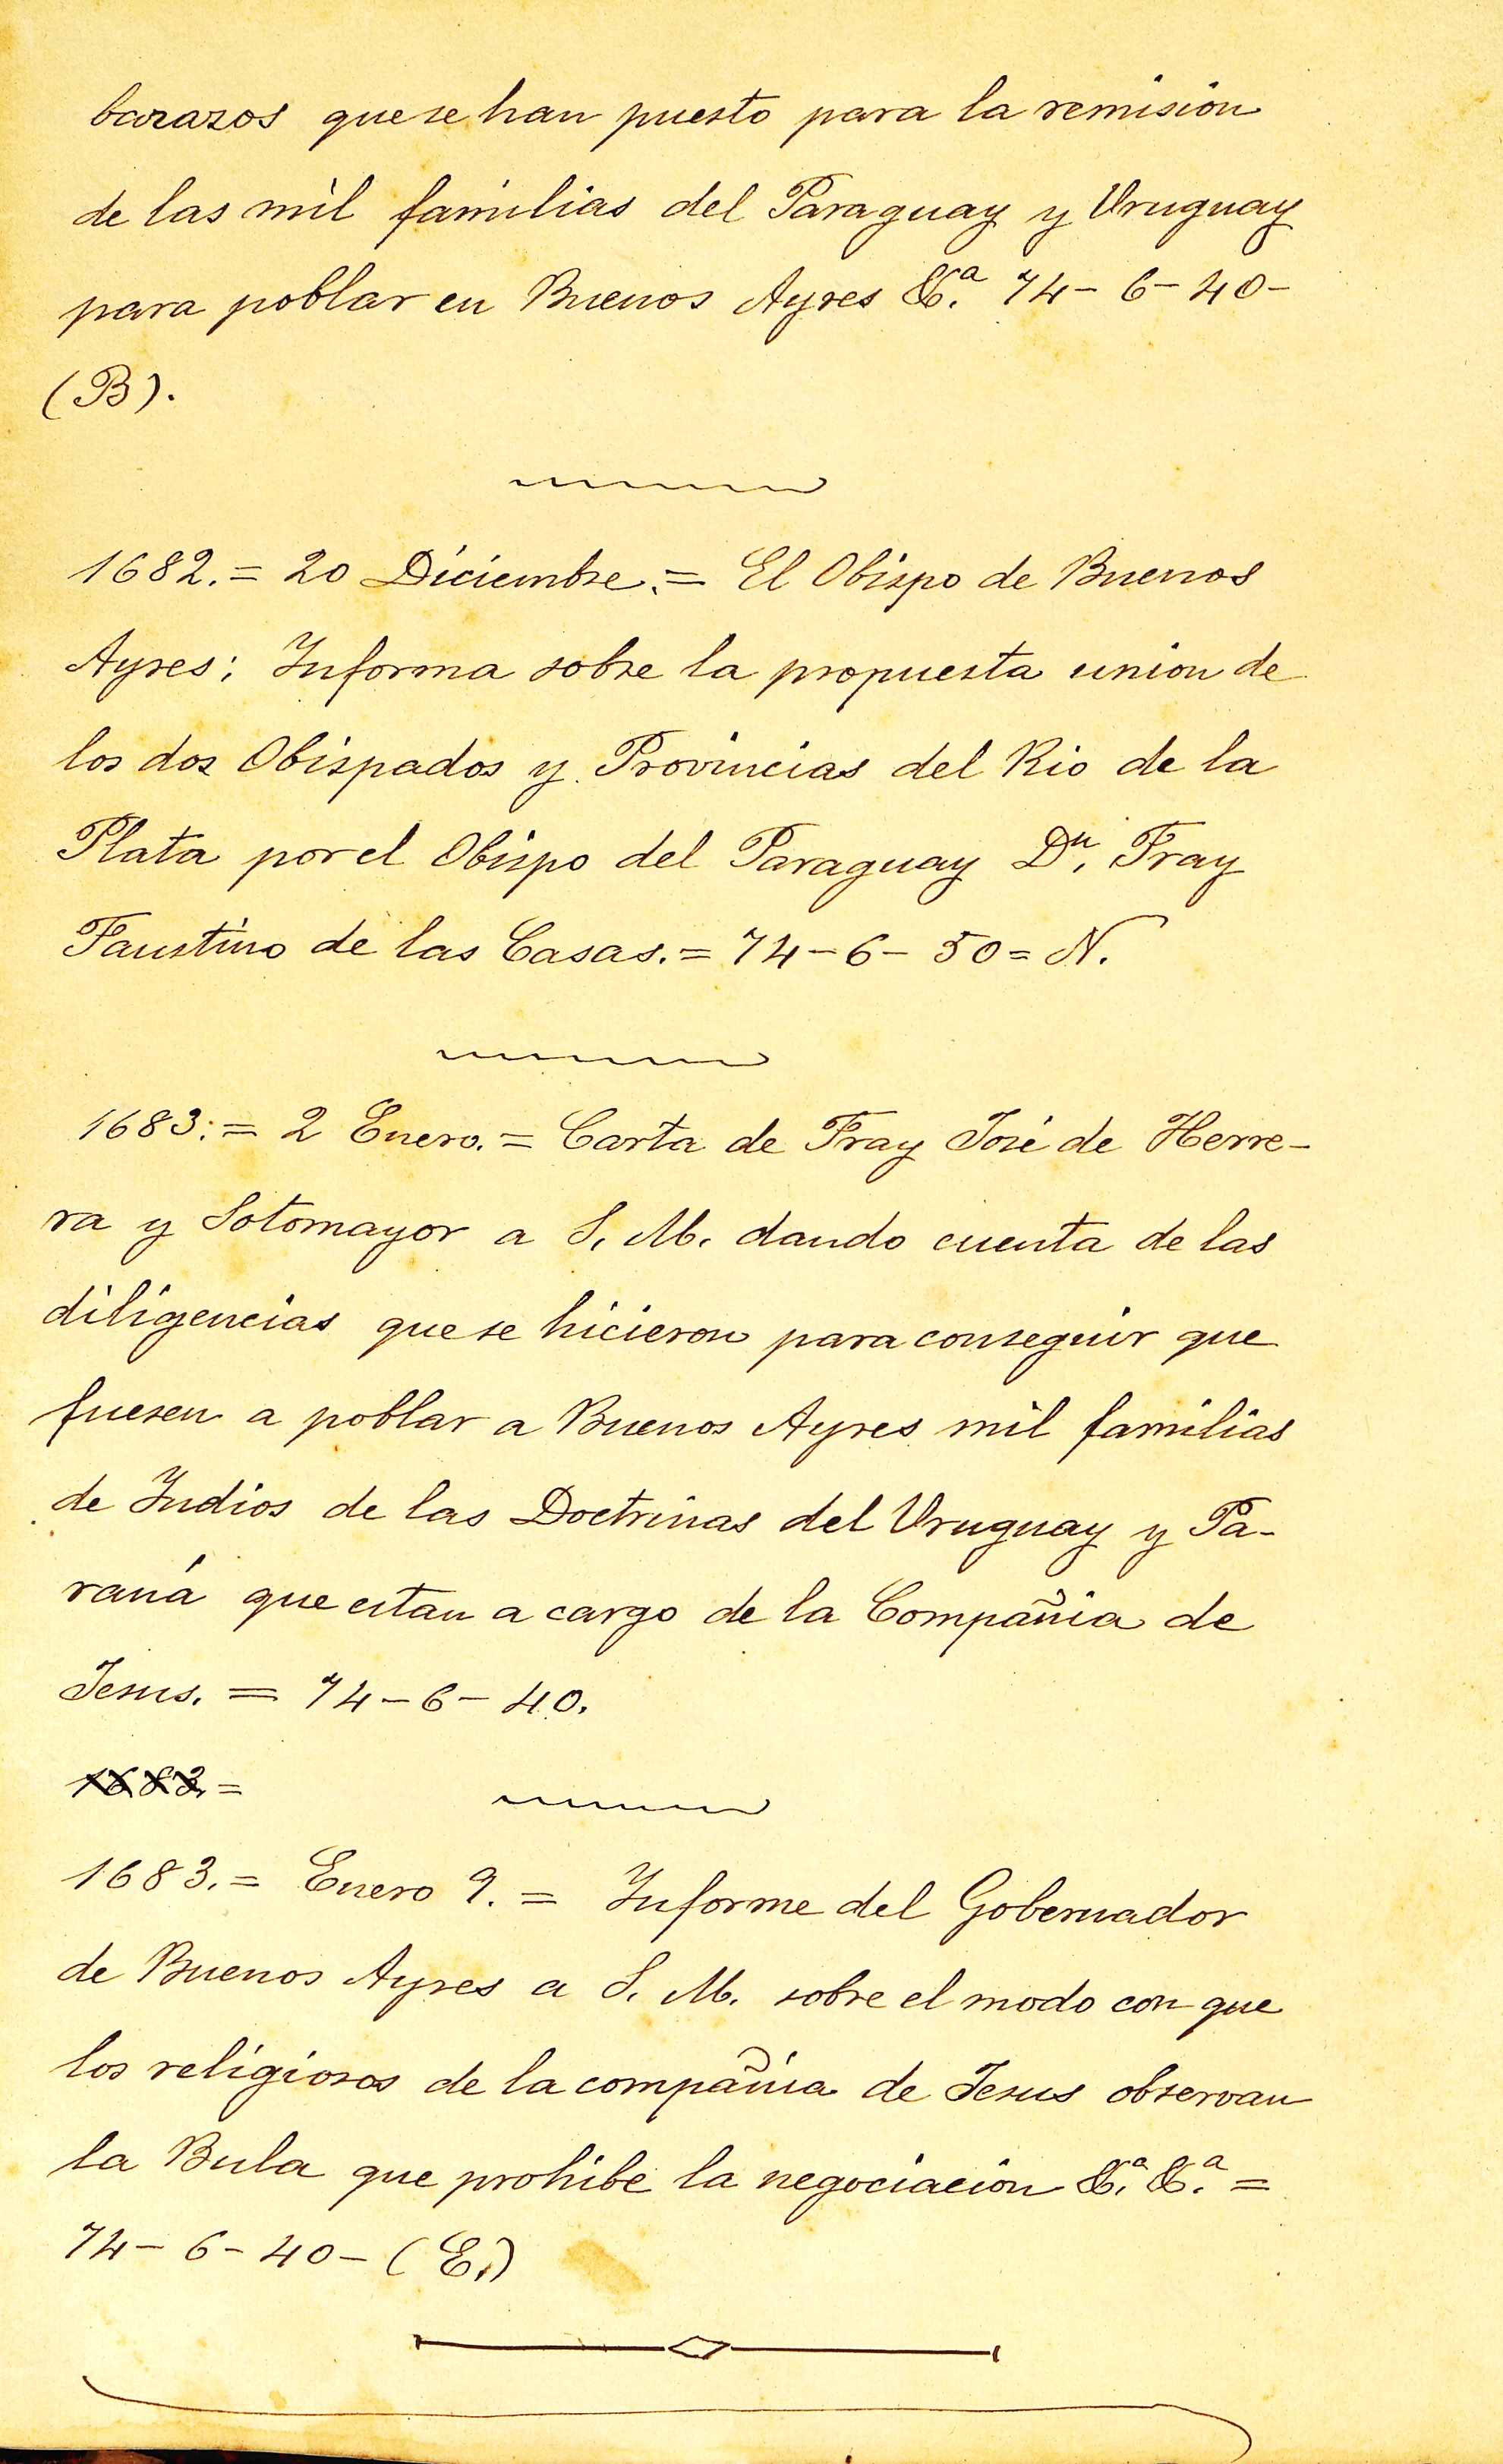 barazos que se han puesto para la remision
de las mil familias del Paraguay y Uruguay
para poblar en Buenos Ayres &.ª 74-6-40-
(B).
1682.= 20 Diciembre.= El Obispo de Buenos
Ayres; Informa sobre la propuesta union de
los dos Obispados y Provincias del Rio de la
Plata por el Obispo del Paraguay Dn. Fray
Faustino de las Casas.= 74-6-50= N.
1683.= 2 Enero.= Carta de Fray José de Herre-
ra y Sotomayor a S. M. dando cuenta de las
diligencias que se hicieron para conseguir que
fuesen a poblar a Buenos Ayres mil familias
de Indios de las Doctrinas del Uruguay y Pa-
raná que estan a cargo de la Compañia de
Jesus. = 74-6-40.
1683.=
1683.= Enero 9. = Informe del Gobernador
de Buenos Ayres a S. M. sobre el modo con que
los religiosos de la compañia de Jesus observan
la Bula que prohibe la negociacion &.ª &.ª =
74-6-40-(E.)